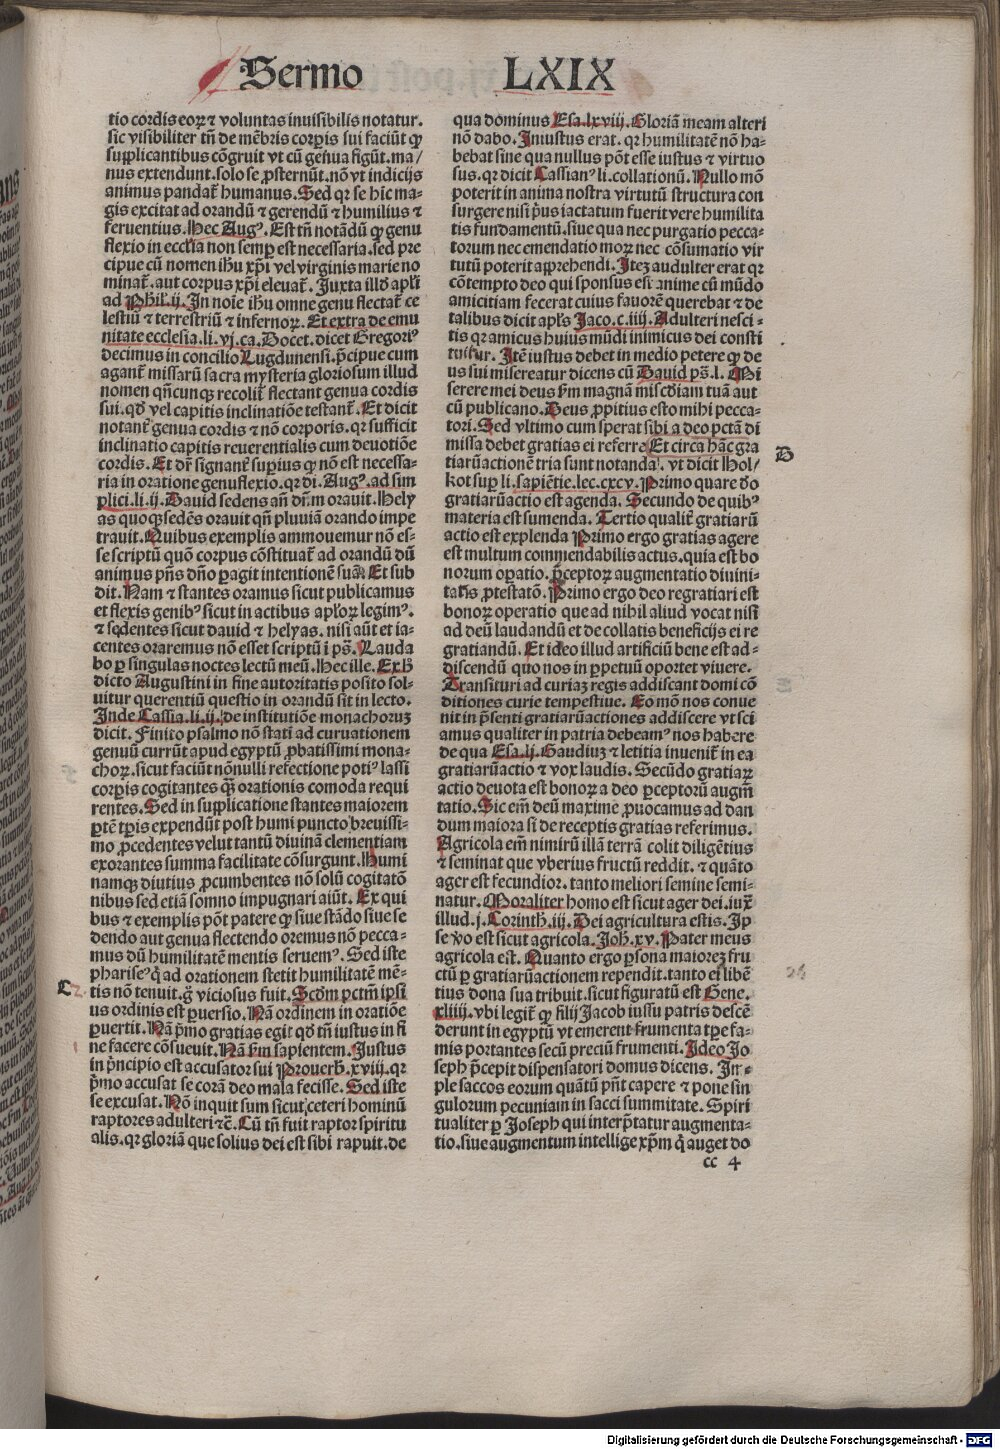 Sermo LXIX
tio cordis eorꝝ ⁊ voluntas inuisibilis notatur.
sic visibiliter tñ de mẽbris corꝑis sui faciũt ꝙ
supplicantibus cõgruit vt cũ genua figũt. ma/
nus extendunt. solo se ꝓsternũt. nõ vt indicijs
animus pandat᷑ humanus. Sed qꝛ se hic ma-
gis excitat ad orandũ ⁊ gerendũ ⁊ humilius ⁊
feruentius. Hec Augꝰ. Est tñ notãdũ ꝙ genu
flexio in ecclia non semꝑ est necessaria. sed pre
cipue cũ nomen ihũ xp̃i vel virginis marie no
minat᷑. aut corpus xp̃i eleuat᷑. Juxta illđ apl̃i
ad Phil̃. ij. In noie ihũ omne genu flectat᷑ ce
lestiũ ⁊ terrestriũ ⁊ infernoꝝ. Et extra de emu
nitate ecclesia. li. vj. ca. Docet. dicet Gregoriꝰ
decimus in concilio Lugdunensi. p̃cipue cum
agant᷑ missarũ sacra mysteria gloriosum illud
nomen qñcunqꝫ recolit᷑ flectant genua cordis
sui. qđ vel capitis inclinatiõe testant᷑. Et dicit
notant᷑ genua cordis ⁊ nõ corporis. qꝛ sufficit
inclinatio capitis reuerentialis cum deuotiõe
cordis. Et dr̃ signant᷑ suꝑius ꝙ nõ est necessa-
ria in oratione genuflexio. qꝛ di. Augꝰ. ad sim
plici. li. ij. Dauid sedens añ dñm orauit. Hely
as quoqꝫ sedẽs orauit qñ pluuiã orando impe
trauit. Quibus exemplis ammouemur nõ es-
se scriptũ quõ corpus cõstituat᷑ ad orandũ dũ
animus pñs dño ꝑagit intentionẽ suã. Et sub
dit. Nam ⁊ stantes oramus sicut publicamus
et flexis genibꝰ sicut in actibus apl̃oꝝ legimꝰ.
⁊ sedentes sicut dauid ⁊ helyas. nisi aũt et ia-
centes oraremus nõ esset scriptũ ĩ ps̃. Lauda
bo ꝑ singulas noctes lectũ meũ. Hec ille. Ex h̃
dicto Augustini in fine autoritatis posito sol-
uitur querentiũ questio in orandũ sit in lecto.
Inde Cassia. li. ij. de institutiõe monachoruꝫ
dicit. Finito psalmo nõ stati ad curuationem
genuũ currũt apud egyptũ ꝓbatissimi mona-
choꝝ. sicut faciũt nõnulli refectione potiꝰ lassi
corꝑis cogitantes qꝫ̃ orationis comoda requi
rentes. Sed in supplicatione stantes maiorem
ꝑtẽ tꝑis expendũt post humi puncto breuissi-
mo ꝓcedentes velut tantũ diuinã clementiam
exorantes summa facilitate cõsurgunt. Humi
namqꝫ diutius ꝓcumbentes nõ solũ cogitatõ
nibus sed etiã somno impugnari aiũt. Ex qui
bus ⁊ exemplis põt patere ꝙ siue stãdo siue se
dendo aut genua flectendo oremus nõ pecca-
mus dũ humilitatẽ mentis seruemꝰ. Sed iste
phariseꝰ q̃ ad orationem stetit humilitatẽ mẽ-
C tis nõ tenuit. g̃ viciosus fuit. Scđm pctm̃ ipsi
us ordinis est ꝑuersio. Nã ordinem in oratiõe
ꝑuertit. Nã p̃mo gratias egit qđ tñ iustus in fi
ne facere cõsueuit. Nã fm̃ sapientem. Justus
in p̃ncipio est accusator sui Prouerb̃. xviij. qꝛ
p̃mo accusat se corã deo mala fecisse. Sed iste
se excusat. Nõ inquit sum sicut ceteri hominũ
raptores adulteri ⁊c̃. Cũ tñ fuit raptor spiritu
alis. qꝛ gloriã que solius dei est sibi rapuit. de
qua dominus Esa. lxviij. Gloriã meam alteri
nõ dabo. Iniustus erat. qꝛ humilitatẽ nõ ha-
bebat sine qua nullus põt esse iustus ⁊ virtuo
sus. qꝛ dicit Cassianꝰ li. collationũ. Nullo mõ
poterit in anima nostra virtutũ structura con
surgere nisi p̃us iactatum fuerit vere humilita
tis fundamentũ. siue qua nec purgatio pecca-
torum nec emendatio moꝝ nec cõsumatio vir
tutũ poterit apprehendi. Iteꝫ audulter erat qꝛ
cõtempto deo qui sponsus est anime cũ mũdo
amicitiam fecerat cuius fauorẽ querebat ⁊ de
talibus dicit apl̃s Jaco. c. iiij. Adulteri nesci-
tis qꝛ amicus huius mũdi inimicus dei consti
tuitur. Itẽ iustus debet in medio petere ꝙ de
us sui misereatur dicens cũ Dauid ps̃. l. Mi
serere mei deus fm̃ magnã misc̃diam tuã aut
cũ publicano. Deus ꝓpitius esto mihi pecca-
tori. Sed vltimo cum sperat sibi a deo pctã di
missa debet gratias ei referre. Et circa hãc gra
D tiarũactionẽ tria sunt notanda. vt dicit Hol/
kot suꝑ li. sapiẽtie. lec. cxcv. Primo quare đo
gratiarũactio est agenda. Secundo de quibꝰ
materia est sumenda. Tertio qualit᷑ gratiarũ
actio est explenda Primo ergo gratias agere
est multum commendabilis actus. quia est bo
norum oꝑatio. p̃ceptoꝝ augmentatio diuini-
tatis ꝓtestatõ. Primo ergo deo regratiari est
bonoꝝ operatio que ad nihil aliud vocat nisi
ad deũ laudandũ et de collatis beneficijs ei re
gratiandũ. Et ideo illud artificiũ bene est ad-
discendũ quo nos in ꝑpetuũ oportet viuere.
Transituri ad curiaꝫ regis addiscant domi cõ
ditiones curie tempestiue. Eo mõ nos conue
nit in p̃senti gratiarũactiones addiscere vt sci
amus qualiter in patria debeamꝰ nos habere
de qua Esa. lj. Gaudiuꝫ ⁊ letitia inuenit᷑ in ea
gratiarũactio ⁊ vox laudis. Secũdo gratiaꝝ
actio deuota est bonoꝝ a deo ꝑceptorũ augm̃
tatio. Sic em̃ deũ maxime ꝓuocamus ad dan
dum maiora si de receptis gratias referimus.
Agricola em̃ nimirũ illã terrã colit diligẽtius
⁊ seminat que vberius fructũ reddit. ⁊ quãto
ager est fecundior. tanto meliori semine semi-
natur. Moraliter homo est sicut ager dei. iuꝝ
illud. j. Corinth̃. iij. Dei agricultura estis. Ip
se ṽo est sicut agricola. Joh̃. xv. Pater meus
agricola est. Quanto ergo ꝑsona maioreꝫ fru
ctũ ꝑ gratiarũactionem rependit. tanto ei libẽ
tius dona sua tribuit. sicut figuratũ est Gene.
xliiij. vbi legit᷑ ꝙ filij Jacob iussiu patris descẽ
derunt in egyptũ vt emerent frumenta tꝑe fa-
mis portantes secũ preciũ frumenti. Ideo Jo
seph p̃cepit dispensatori domus dicens. Im-
ple saccos eorum quãtũ pñt capere ⁊ pone sin
gulorum pecuniam in sacci summitate. Spiri
tualiter ꝑ Joseph qui interp̃tatur augmenta-
tio. siue augmentum intellige xp̃m q̃ auget do
cc 4
26
Digitalisierung gefördert durch die Deutsche Forschungsgemeinschaft - DFG